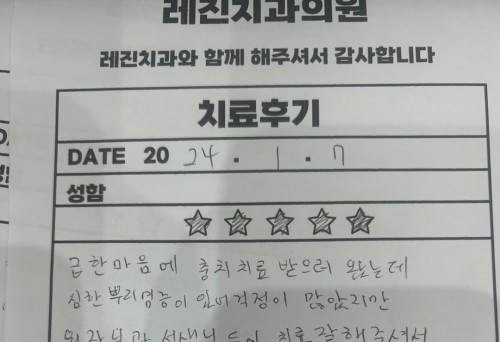 레진치과의원
레진치과와 함께 해주셔서 감사합니다
치료후기
DATE 20 24 . 1 . 7
성함
급한마음에 충치치료 받으러 왔는데
심한 뿌리염증이 있어 걱정이 많았지만
치료 잘해주셔서